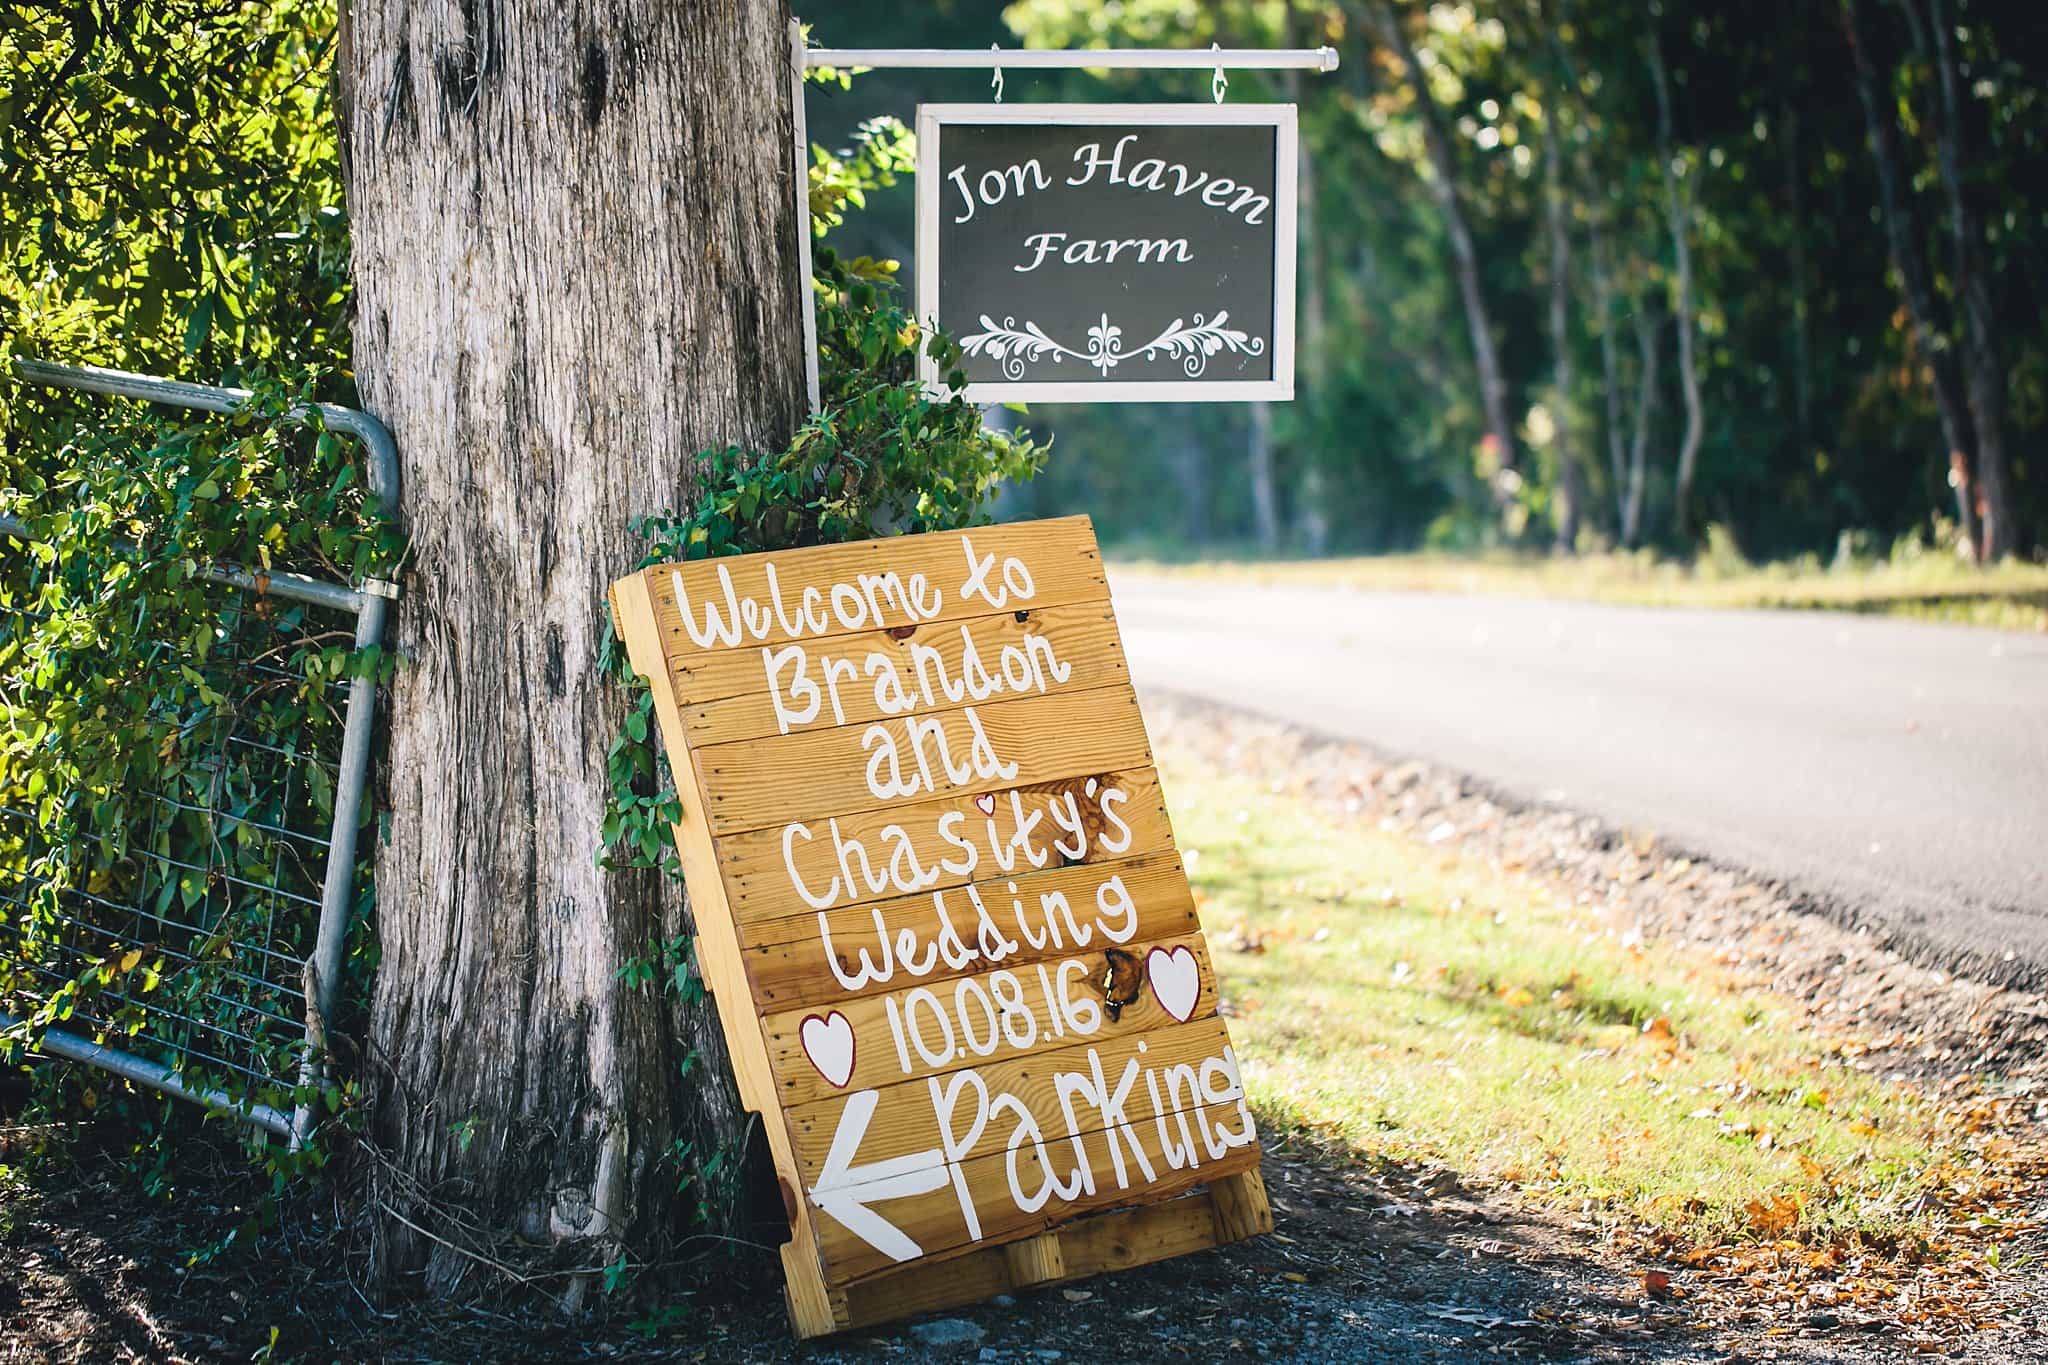 Jon Haven
Farm
Welcome to
Brandon
and
Chasity's
Wedding
10.08.16
Parking